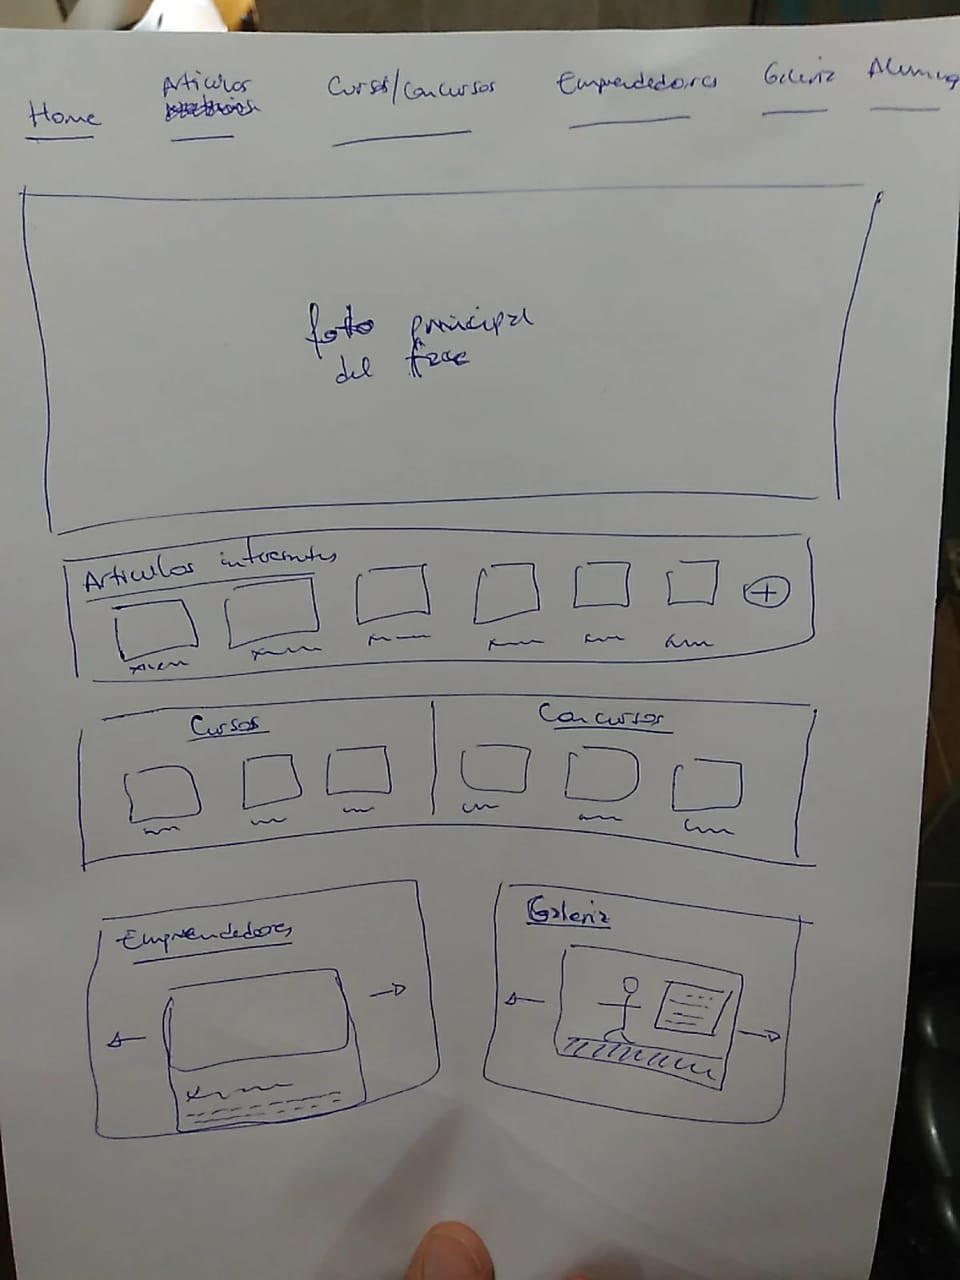 Home
Articulos
Cursos/Concursos
Emprendedores
Galeria
foto principal
del
Articulos
Cursos
Concursos
Emprendedores
Galeria